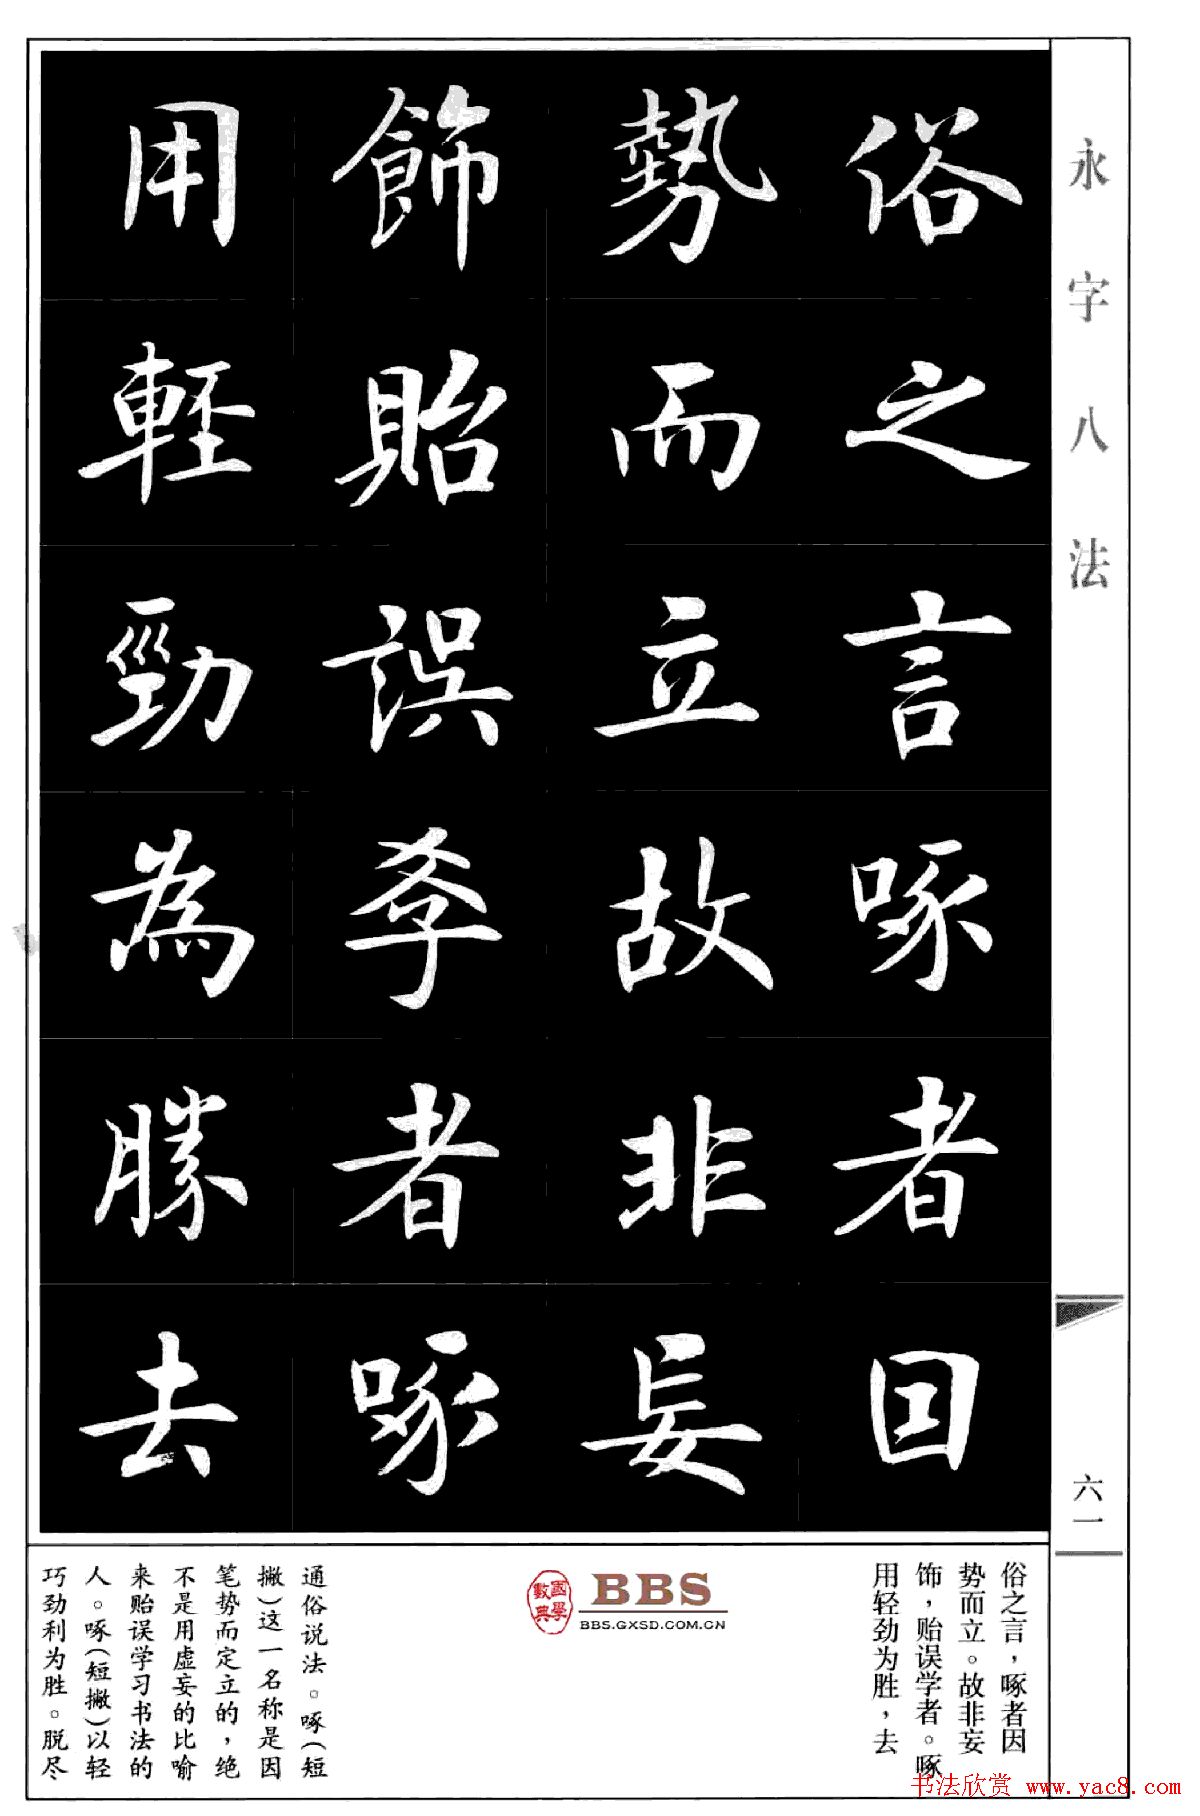 永字八法
俗之言啄者因
勢而立故非妄
飾貽誤孝者啄
用輕勁為勝去
六一
俗之言，啄者因
势而立。故非妄
饰，贻误学者。啄
用轻劲为胜，去
國學
數典
BBS
BBS.GXSD.COM.CN
通俗说法。啄（短
撇）这一名称是因
笔势而定立的，绝
不是用虚妄的比喻
来贻误学习书法的
人。啄（短撇）以轻
巧劲利为胜。脱尽
书法欣赏 www.yac8.com